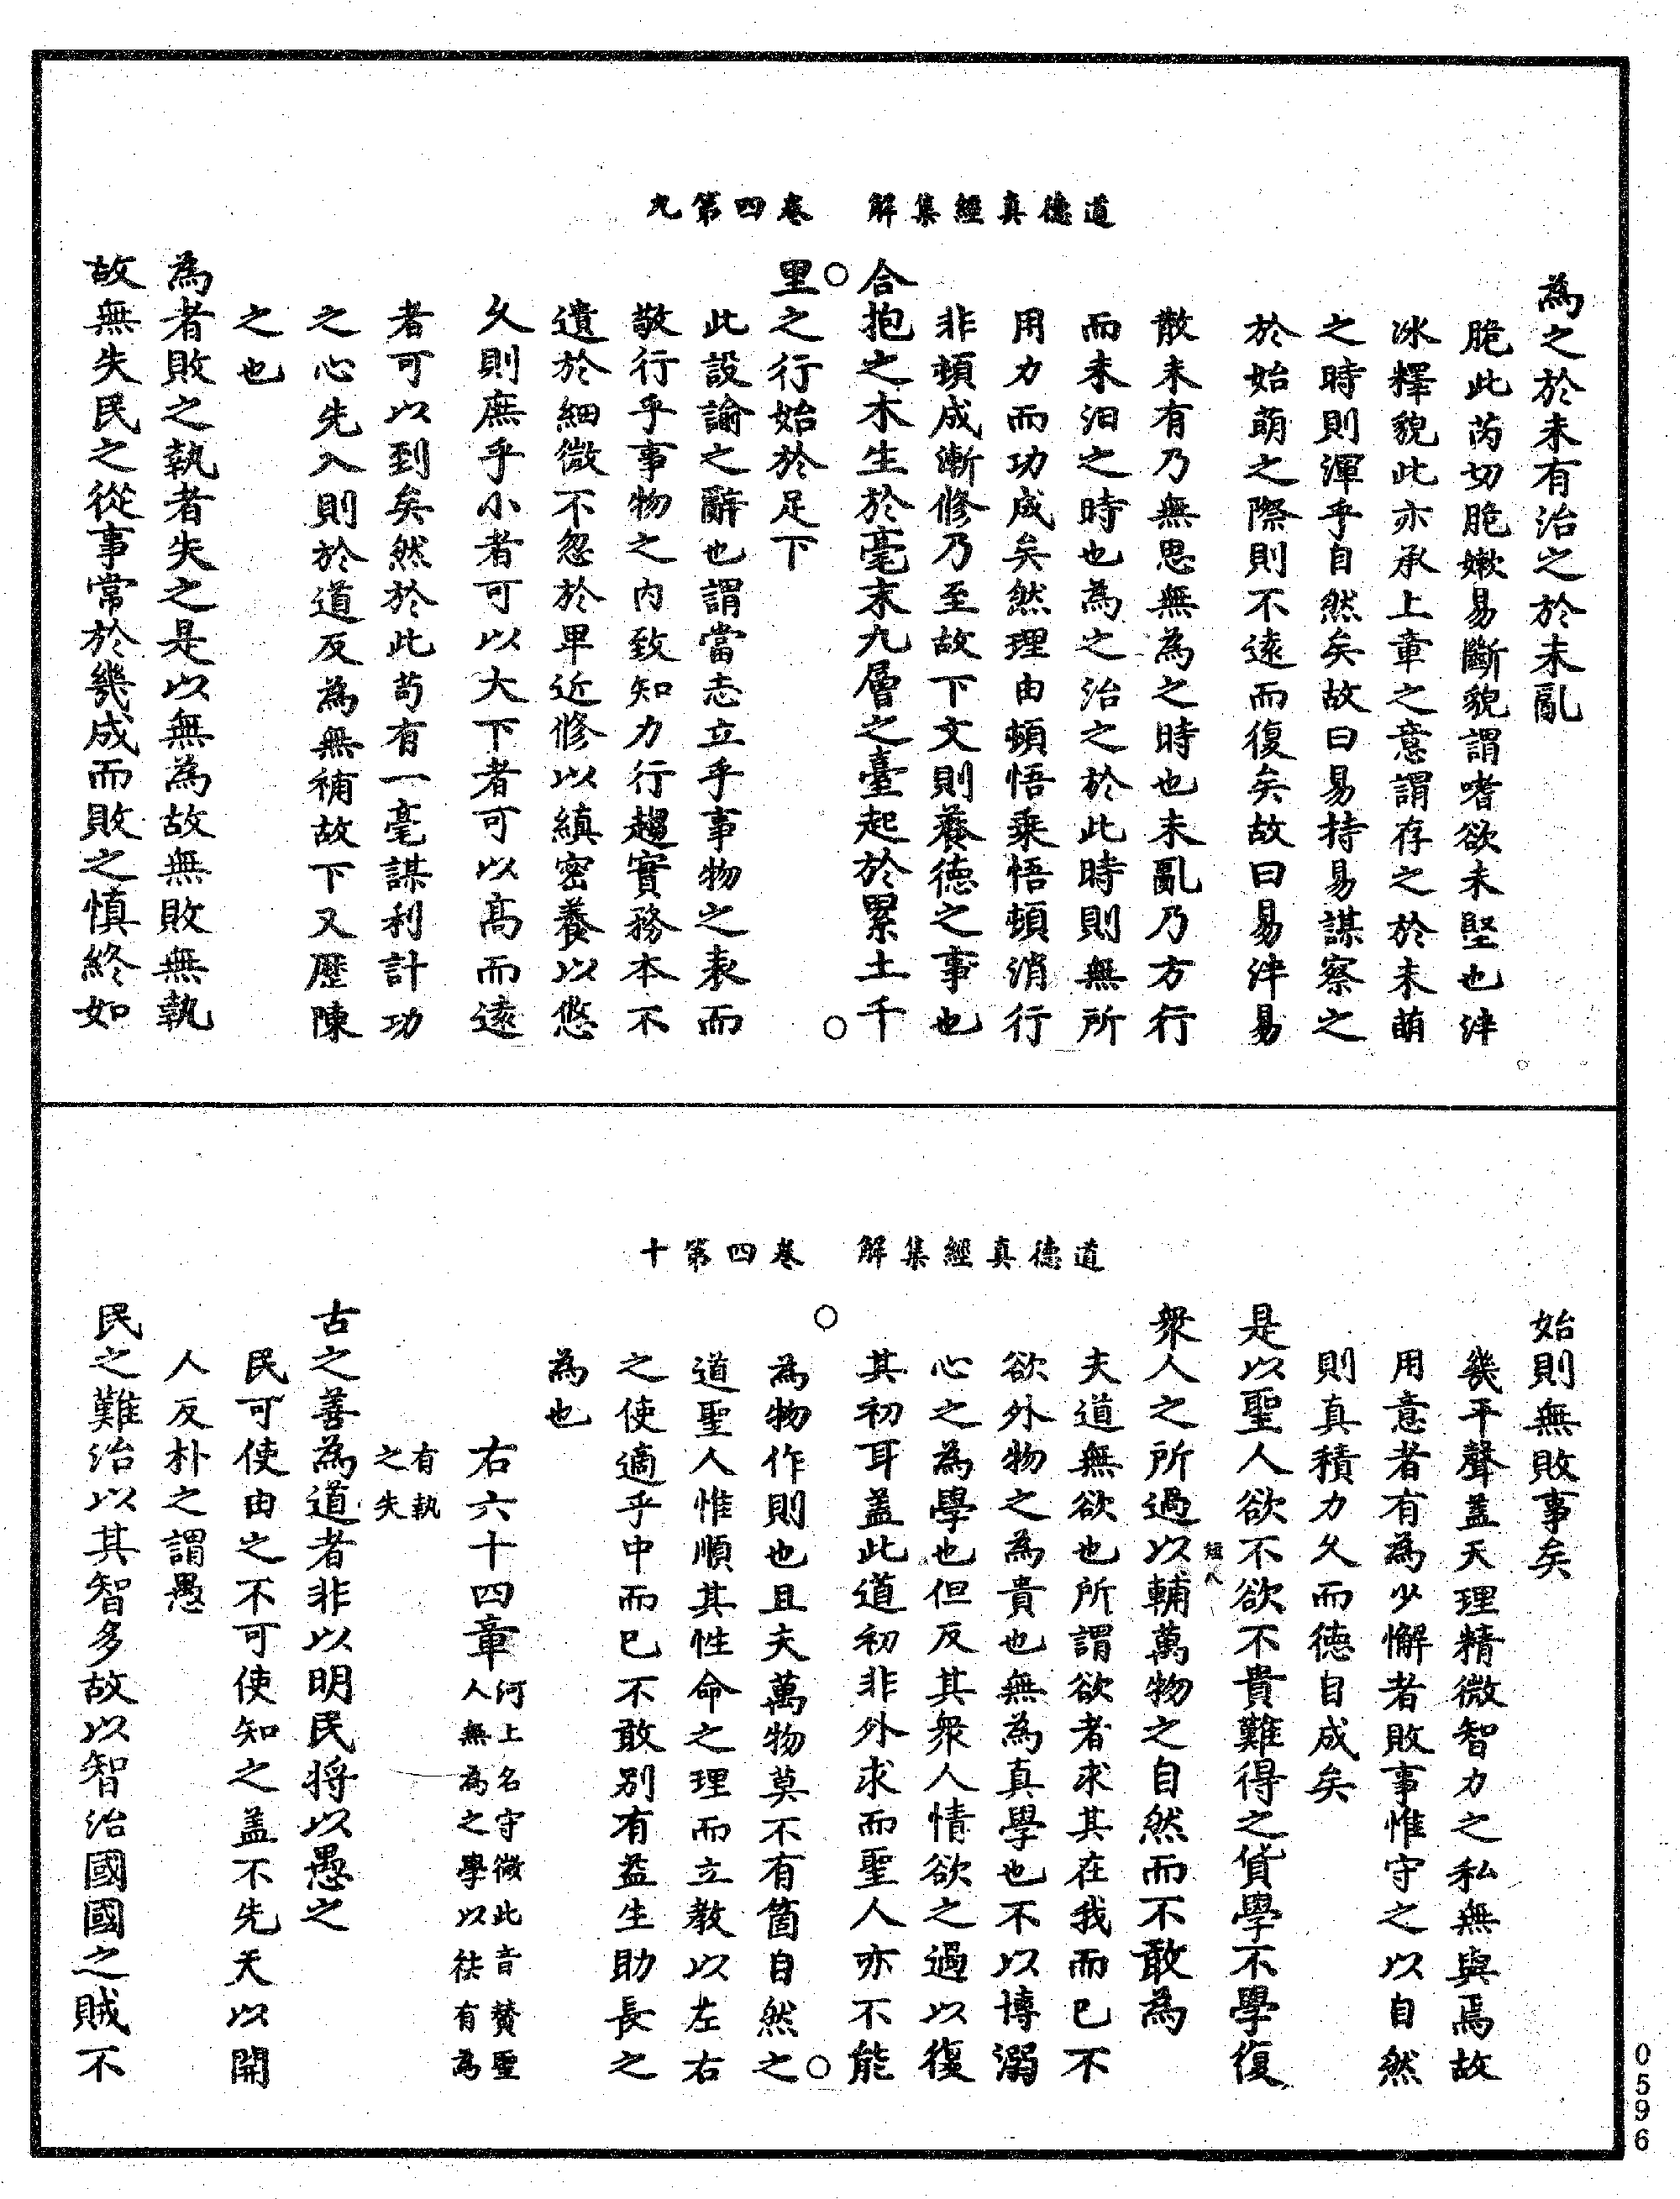 道德真經集解　卷四第九
為之於未有治之於未亂
脆此芮切脆嫩易斷貌謂嗜欲未堅也泮
冰釋貌此亦承上章之意謂存之於未萌
之時則渾乎自然矣故曰易持易謀察之
於始萌之際則不遠而復矣故曰易泮易
散未有乃無思無為之時也未亂乃方行
而未汩之時也為之治之於此時則無所
用力而功成矣然理由頓悟乘悟頓消行
非頓成漸修乃至故下文則養德之事也
合抱之木生於毫末九層之臺起於累土千
里之行始於足下
此設諭之辭也謂當志立乎事物之表而
敬行乎事物之內致知力行趨實務本不
遺於細微不忽於卑近修以縝密養以悠
久則庶乎小者可以大下者可以高而遠
者可以到矣然於此苟有一毫謀利計功
之心先入則於道反為無補故下又歷陳
之也
為者敗之執者失之是以無為故無敗無執
故無失民之從事常於幾成而敗之慎終如
道德真經集解　卷四第十
始則無敗事矣
幾平聲蓋天理精微智力之私無與焉故
用意者有為少懈者敗事惟守之以自然
則真積力久而德自成矣
是以聖人欲不欲不貴難得之貨學不學復
眾人之所過以輔萬物之自然而不敢為
夫道無欲也所謂欲者求其在我而已不
欲外物之為貴也無為真學也不以博溺
心之為學也但反其眾人情欲之過以復
其初耳蓋此道初非外求而聖人亦不能
為物作則也且夫萬物莫不有箇自然之
道聖人惟順其性命之理而立教以左右
之使適乎中而已不敢別有益生助長之
為也
右六十四章河上名守微此言贊聖人無為之學以袪有為有執之失
古之善為道者非以明民將以愚之
民可使由之不可使知之蓋不先天以開
人反朴之謂愚
民之難治以其智多故以智治國國之賊不
0596